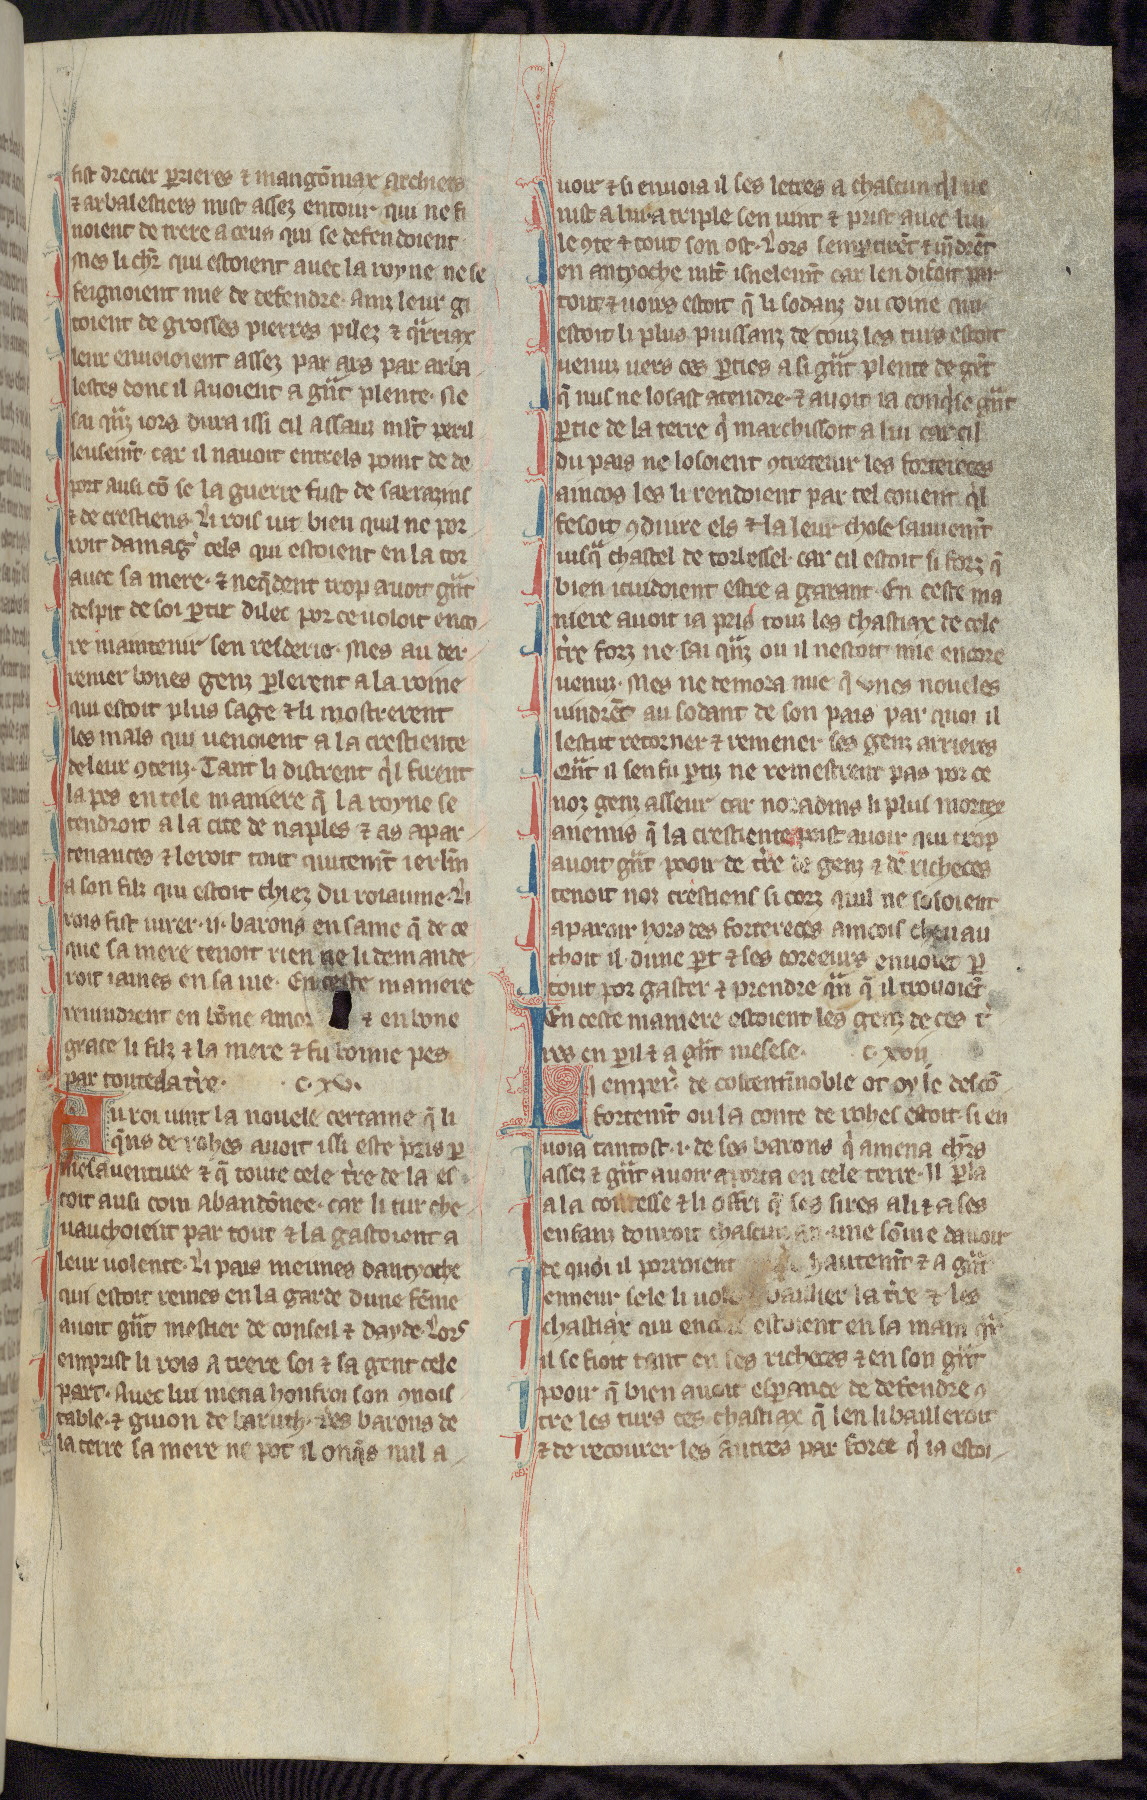 fist drecier p̄rieres ⁊ mangōniax archiers
⁊ arbalestiers mist assez entour qui ne fi
noient de trere a ceus qui se defendoient
Mes li chr̄ qui estoient auec la royne ne se
feignoient mie de defendre. Ainz leur gi
toient de grosses pierres pilez ⁊ q̄rriax
leur enuoioient assez par ars par arba
lestes dont il auoient a gnt plente. Ne
sai qnz iors dura issi cil assauz ml̄t peril
leusemt̄. car il nauoit entrels point de de
port ausi cō se la guerre fust de sarrazins
⁊ de crestiens. Li rois uit bien quil ne por
roit damagˀ cels qui estoient en la tor
auec sa mere. ⁊ neq̄dent trop auoit gnt
despit de soi p̄tir dilec por ce uoloit enco
re maintenir sen resderie. Mes au der
renier bones genz p̄lerent a la roine
qui estoit plus sage ⁊ li mostrerent
les mals qui uenoient a la crestiente
de leur ꝯtenz. Tant li distrent q̄l firent
la pes en tele maniere q̄ la royne se
tendroit a la cite de naples ⁊ as apar
tenances ⁊ leroit tout quitemt̄ ierl̄m
a son filz qui estoit chiez du roiaume. Li
rois fist iurer .ii. barons en same q̄ de ce
que sa mere tenoit rien ne li demande
roit iames en sa uie. En ceste maniere
reuindrent en bōne amor ⁊ en bone
grace li filz ⁊ la mere ⁊ fu bonne pes
par toute la tr̄re. c. xv.
Au roi uint la nouele certaine q̄ li
q̄ns de rohes auoit issi este pris p̄
mesauenture ⁊ q̄ toute cele tr̄re de la es
toit ausi com abandōnee. car li tur che
uauchoient par tout ⁊ la gastoient a
leur uolente. Li pais meimes dantyoche
qui estoit remes en la garde dune feme
auoit gnt mestier de conseil ⁊ dayde. Lors
emprist li rois a trere soi ⁊ sa gent cele
part. Auec lui mena honfroi son ꝯnois
table. ⁊ guion de baruth. Des barons de
la terre sa mere ne pot il onq̄s nul a
uoir ⁊ si enuoia il ses letres a chascun q̄l ue
nist a lui a triple sen uint ⁊ prist auec lui
le ꝯte ⁊ tout son ost. Lors sempartirēt ⁊ uīdrēt
en antyoche ml̄t isnelemt̄ car len disoit par
tout ⁊ uoirs estoit q̄ li sodanz du coine qui
estoit li plus puissanz de touz les turs estoit
uenuz uers ces p̄ties a si gnt plente de gēt
q̄ nus ne losast atendre. ⁊ auoit ia conq̄se gnt
p̄tie de la terre q̄ marchissoit a lui car cil
du pais ne losoient ꝯtretenir les forteleces
aincois les li rendoient par tel couent q̄l
fesoit ꝯduire els ⁊ la leur chose sauuemt̄
iusq̄ chastel de torlessel. car cil estoit si forz q̄
bien i cuidoient estre a garant. En ceste ma
niere auoit ia pris touz les chastiax de cele
tr̄re forz ne sai qnz ou il nestoit mie encore
uenuz. Mes ne demora mie q̄ unes noueles
uindrēt au sodant de son pais par quoi il
lestut retorner ⁊ remener ses genz arrieres
Qnt il sen fu p̄tiz ne remestrent pas por ce
noz genz asseur car noradins li plus mortex
anemis q̄ la crestiente poist auoir qui trop
auoit gnt pooir de tr̄re de genz ⁊ de richeces
tenoit noz crestiens si corz quil ne sosoient
aparoir hors des fortereces aincois cheuau
choit il dune p̄t ⁊ ses coreeurs enuoiet p̄
tout por gaster ⁊ prendre qn q̄ il trouoiēt
En ceste maniere estoient les genz de ces tr̄
res en p̄il ⁊ a gnt mesese. c. xvii
Li emperˀ. de costentīnoble ot oy le descō
fortemt̄ ou la conte de rohes estoit. si en
uoia tantost .i. de ses barons q̄ amena chr̄s
assez ⁊ gnt auoir aporta en cele terre. Il p̄la
a la contesse ⁊ li offri q̄ ses sires a li ⁊ a ses
enfanz donroit chascun an une sōme dauoir
de quoi il porroient hautemt̄ ⁊ a gnt
enneur sele li baillier la tr̄re ⁊ les
chastiax qui encor estoient en sa main qr̄
il se fioit tant en ses richeces ⁊ en son gnt
pooir q̄ bien auoit esp̄ance de defendre ꝯ
tre les turs ces chastiax q̄ len li bailleroit
⁊ de recourer les autres par force q̄ ia estoi